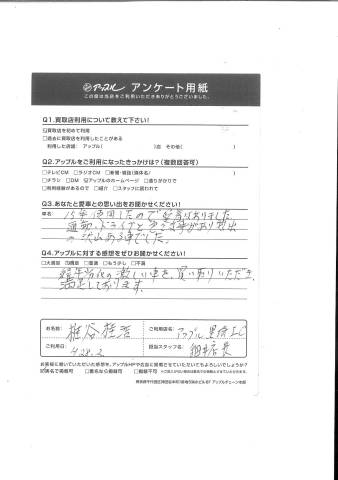 アップル アンケート用紙
この度は当店をご利用いただきありがとうございました。
Q1.買取店利用について教えて下さい!
買取店を初めて利用
□過去に買取店を利用したことがある
利用した店舗: アップル( )店 その他( )
Q2.アップルをご利用になったきっかけは?(複数回答可)
□テレビCM □ラジオCM □新聞・雑誌(媒体名)
□チラシ □DM アップルのホームページ □通りがかりで
□利用経験があるので □紹介 □スタッフに誘われて
Q3.あなたと愛車との思い出をお聞かせください!
車名:
15年使用したので愛着はありました。
通勤、ドライブと
の沢山ある車でした。
Q4.アップルに対する感想をぜひお聞かせください!
□大満足 満足 □普通 □もう少し □不満
経年劣化の激しい車を、買い取りいただき、
満足しております。
お名前:
ご利用店名:
アップル
ご利用日:
4.28.2
担当スタッフ名:
店長
お客様に書いていただいた感想を、アップルHPや店舗に掲載させていただいてもよろしいでしょうか?
記載名で掲載可 □匿名なら掲載可 □掲載不可